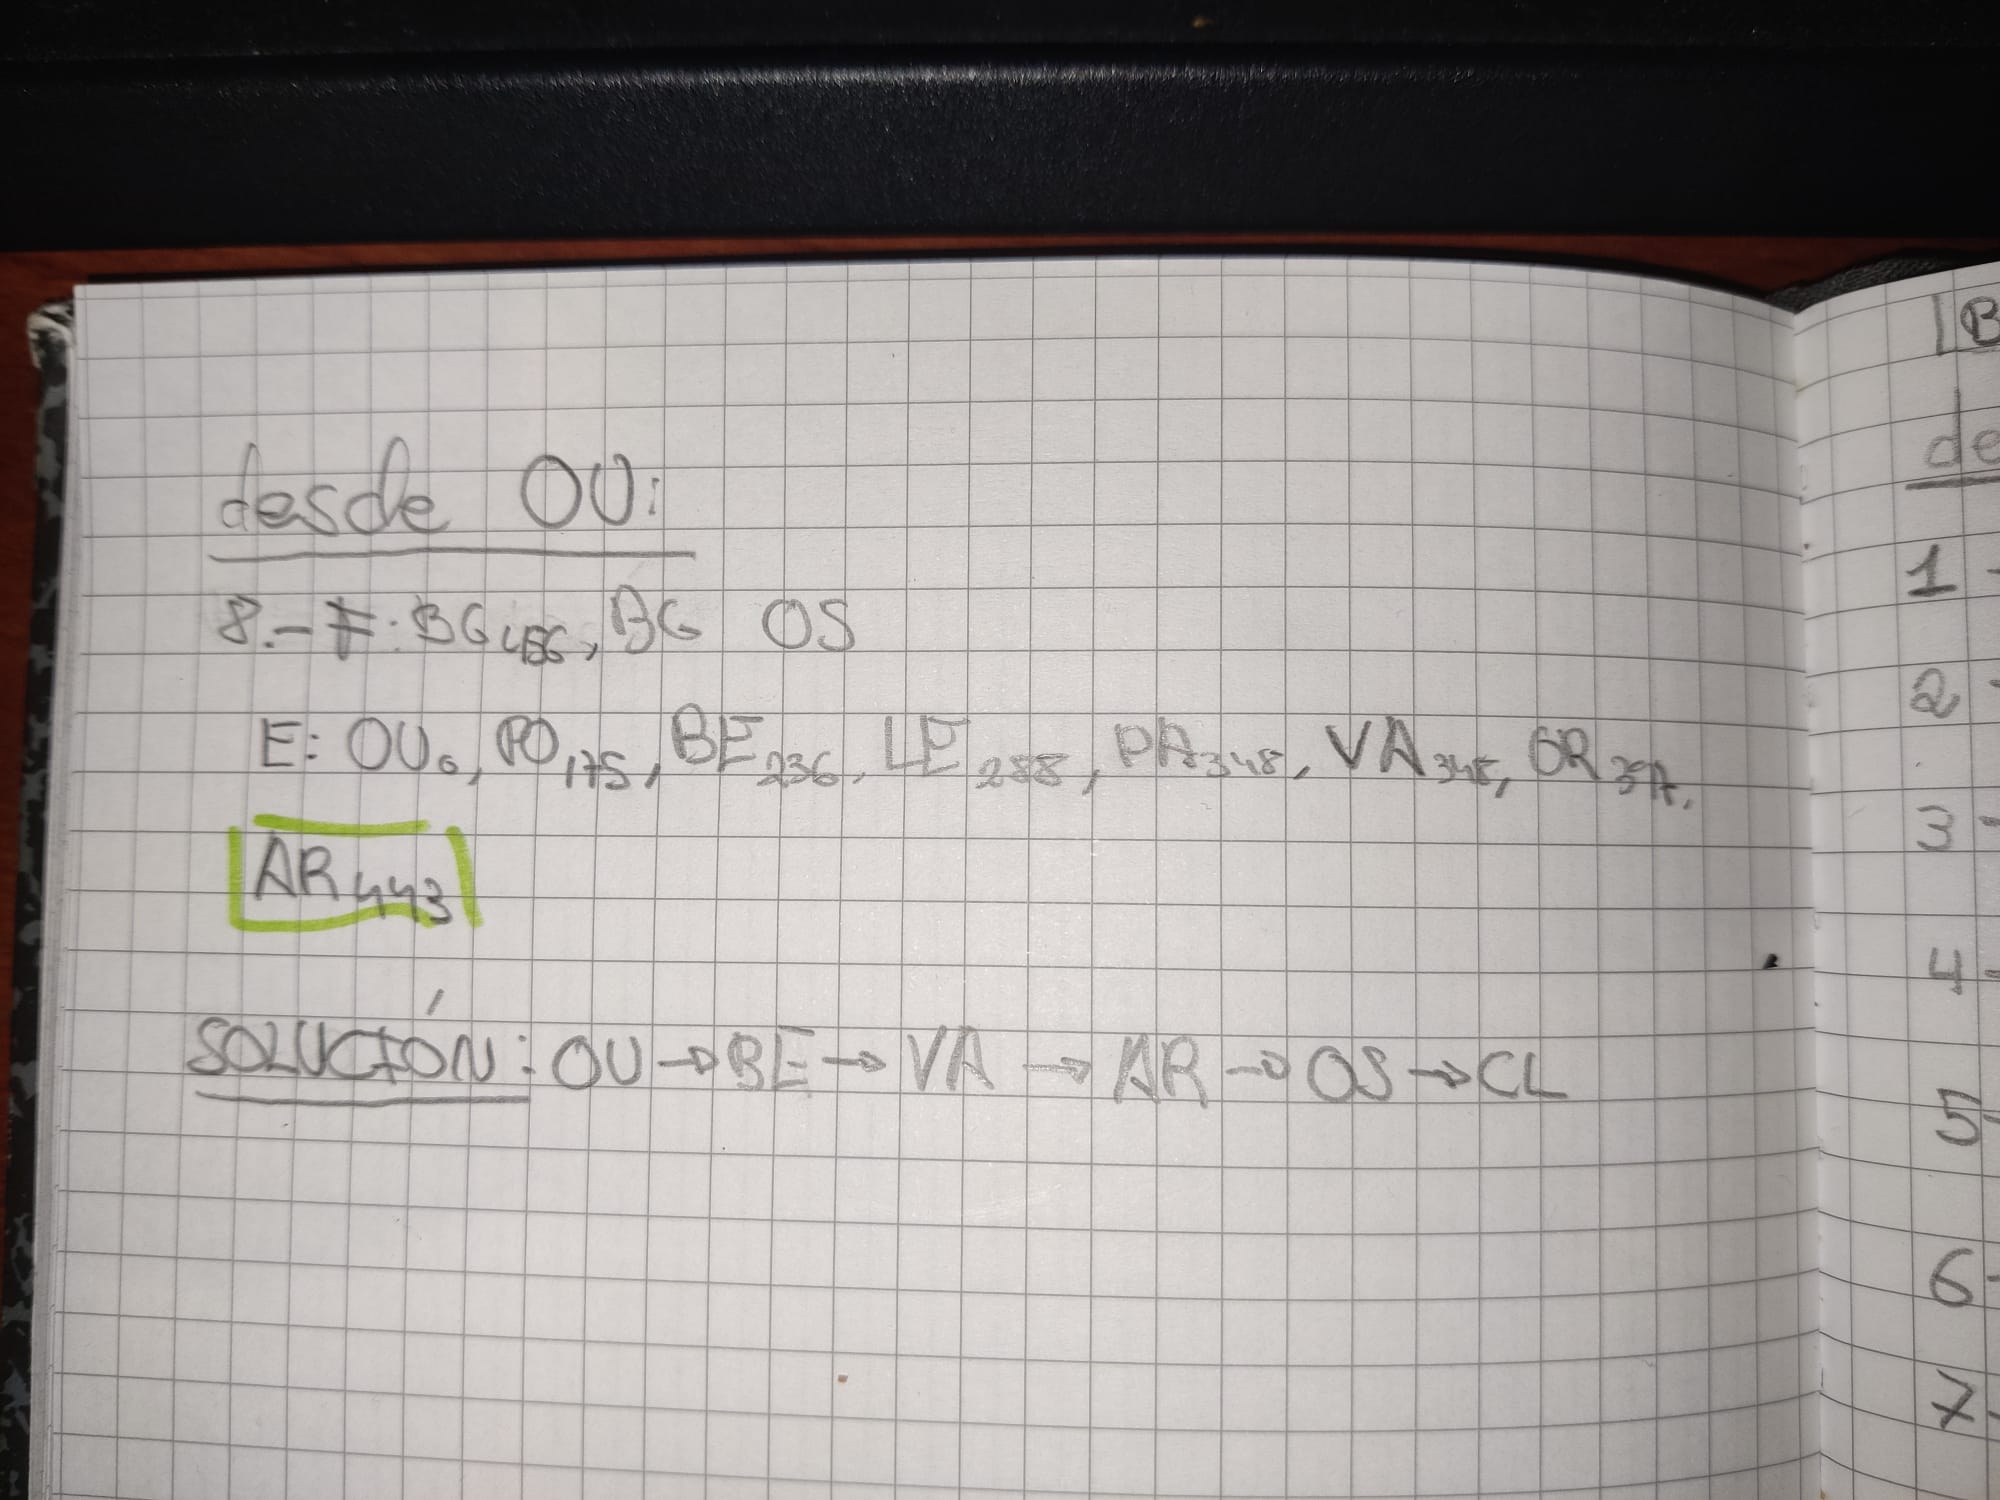 desde OU:
8.- F: BG486, BG OS
E: OU0, PO175, BE236, LE288, PA348, VA348, OR397,
AR443
SOLUCIÓN: OU → BE → VA → AR → OS → CL
B
de
1 -
2 -
3 -
4 -
5-
6-
7-